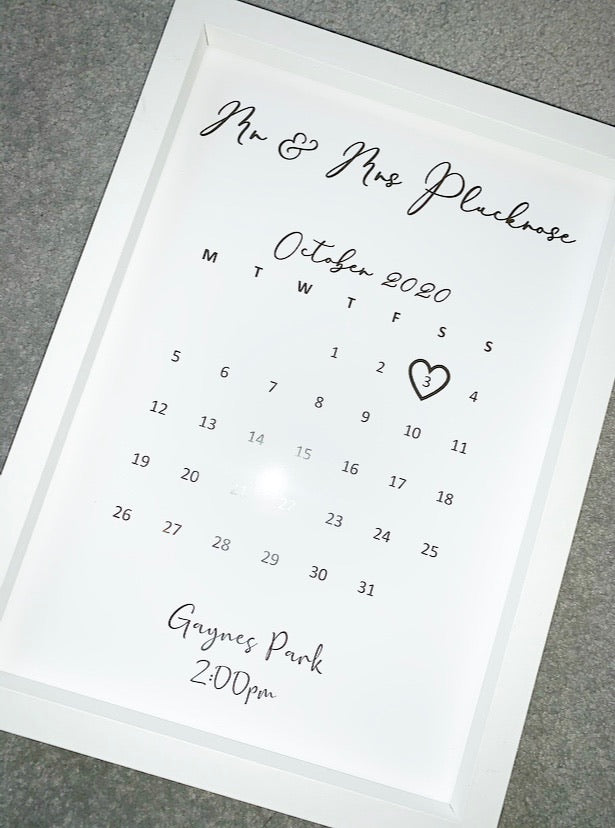 Mr & Mrs Pluckrose
October 2020
M T W T F S S
1 2 3 4
5 6 7 8 9 10 11
12 13 14 15 16 17 18
19 20 21 22 23 24 25
26 27 28 29 30 31
Gaynes Park
2:00pm